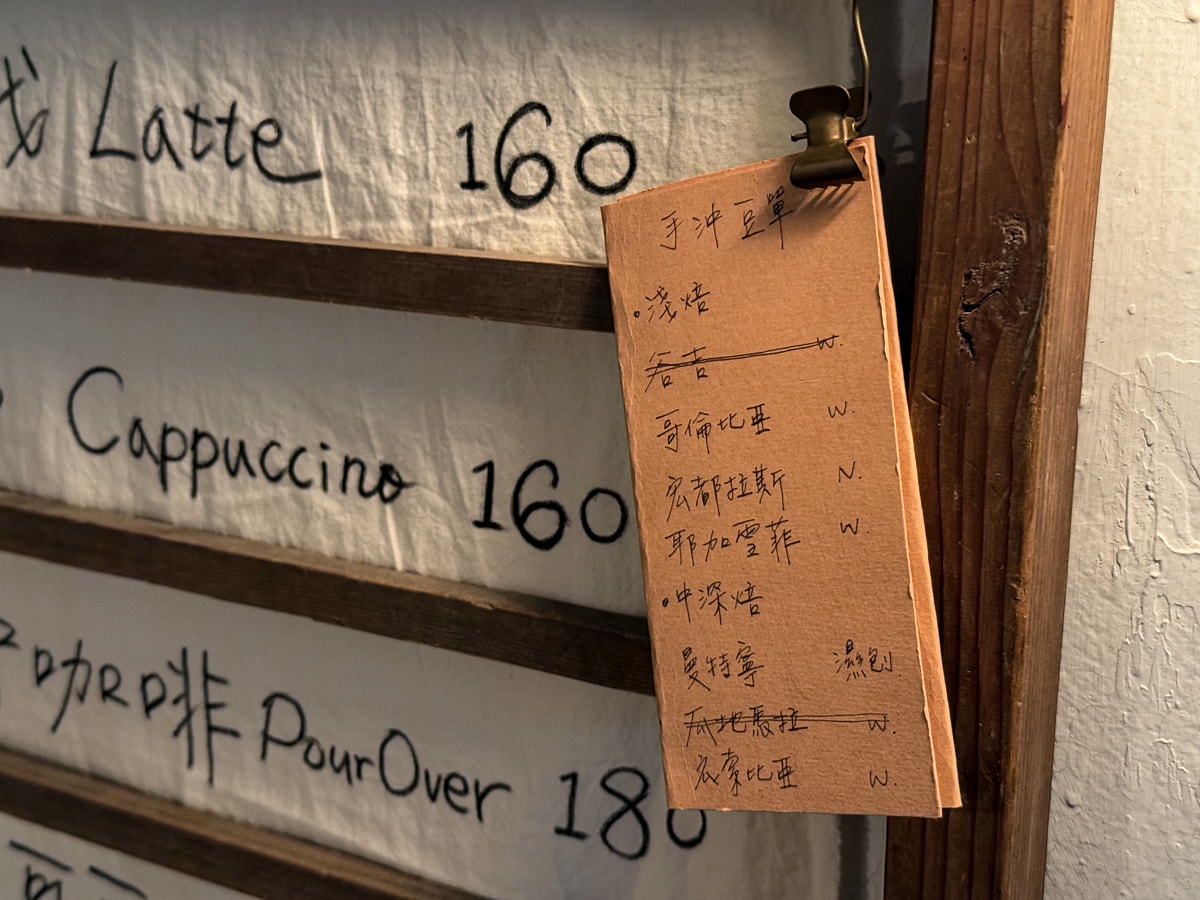 Latte 160
Cappuccino 160
咖啡 PourOver 180
手沖豆單
•浅焙
谷吉 W.
哥倫比亞 W.
宏都拉斯 N.
耶加雪菲 W.
•中深焙
曼特寧 濕刨.
瓜地馬拉 W.
衣索比亞 W.